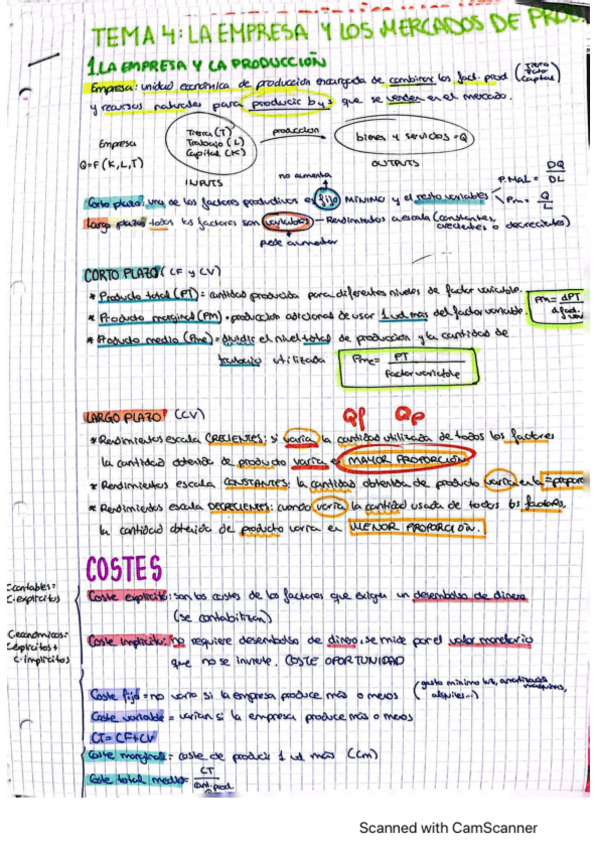 TEMA 4: LA EMPRESA Y LOS MERCADOS DE PROD.
1. LA EMPRESA Y LA PRODUCCIÓN
Empresa: unidad económica de producción encargada de combinar los fact. prod (
y recursos naturales para producir b y s que se venden en el mercado.
Empresa
Q=F(K,L,T)
Tierra (T)
Trabajo (L)
Capital (K)
INPUTS
producción
bienes y servicios = Q
OUTPUTS
no aumenta
P.MaL = DQ / DL
Pme = Q / L
Corto plazo: una de los factores productivos es fijo MÍNIMO y el resto variables
Largo plazo: todos los factores son variables — Rendimientos a escala (constantes, crecientes o decrecientes)
pede aumentar
CORTO PLAZO (CF y CV)
* Producto total (PT) = cantidad producida para diferentes niveles de factor variable.
* Producto marginal (PM) = producción adicional de usar 1 ud más del factor variable.
* Producto medio (Pme) = dividir el nivel total de producción y la cantidad de
trabajo utilizada
Pme = PT / Factor variable
LARGO PLAZO (CV)
* Rendimientos escala CRECIENTES: si varía la cantidad utilizada de todos los factores
la cantidad obtenida de producto varía en MAYOR PROPORCIÓN
* Rendimientos escala CONSTANTES: la cantidad obtenida de producto varía en la = propor
* Rendimientos escala DECRECIENTES: cuando varía la cantidad usada de todos los factores,
la cantidad obtenida de producto varía en MENOR PROPORCIÓN.
COSTES
C.contables =
C.explícitos
C.económicos =
C.explícitos +
C.implícitos
Coste explícito: son los costes de los factores que exigen un desembolso de dinero
(se contabilizan)
Coste implícito: no requiere desembolso de dinero, se mide por el valor monetario
que no se invierte. COSTE OPORTUNIDAD
Coste fijo = no varía si la empresa produce más o menos (gasto mínimo luz,
alquiler...)
Coste variable = varían si la empresa produce más o menos
CT = CF + CV
Coste marginal = coste de producir 1 ud más (Cm)
Coste total medio = CT / cant. prod.
Scanned with CamScanner